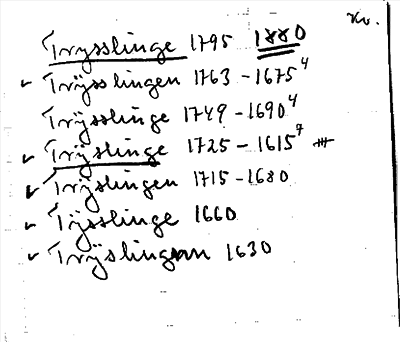 Kv.
Trysslinge 1795 1880
Trÿsslingen 1763 - 1675⁴
Trÿsslinge 1749 - 1690⁴
Trÿslinge 1725 - 1615⁷
Trÿslingen 1715 - 1680
Tÿsslinge 1660
1630